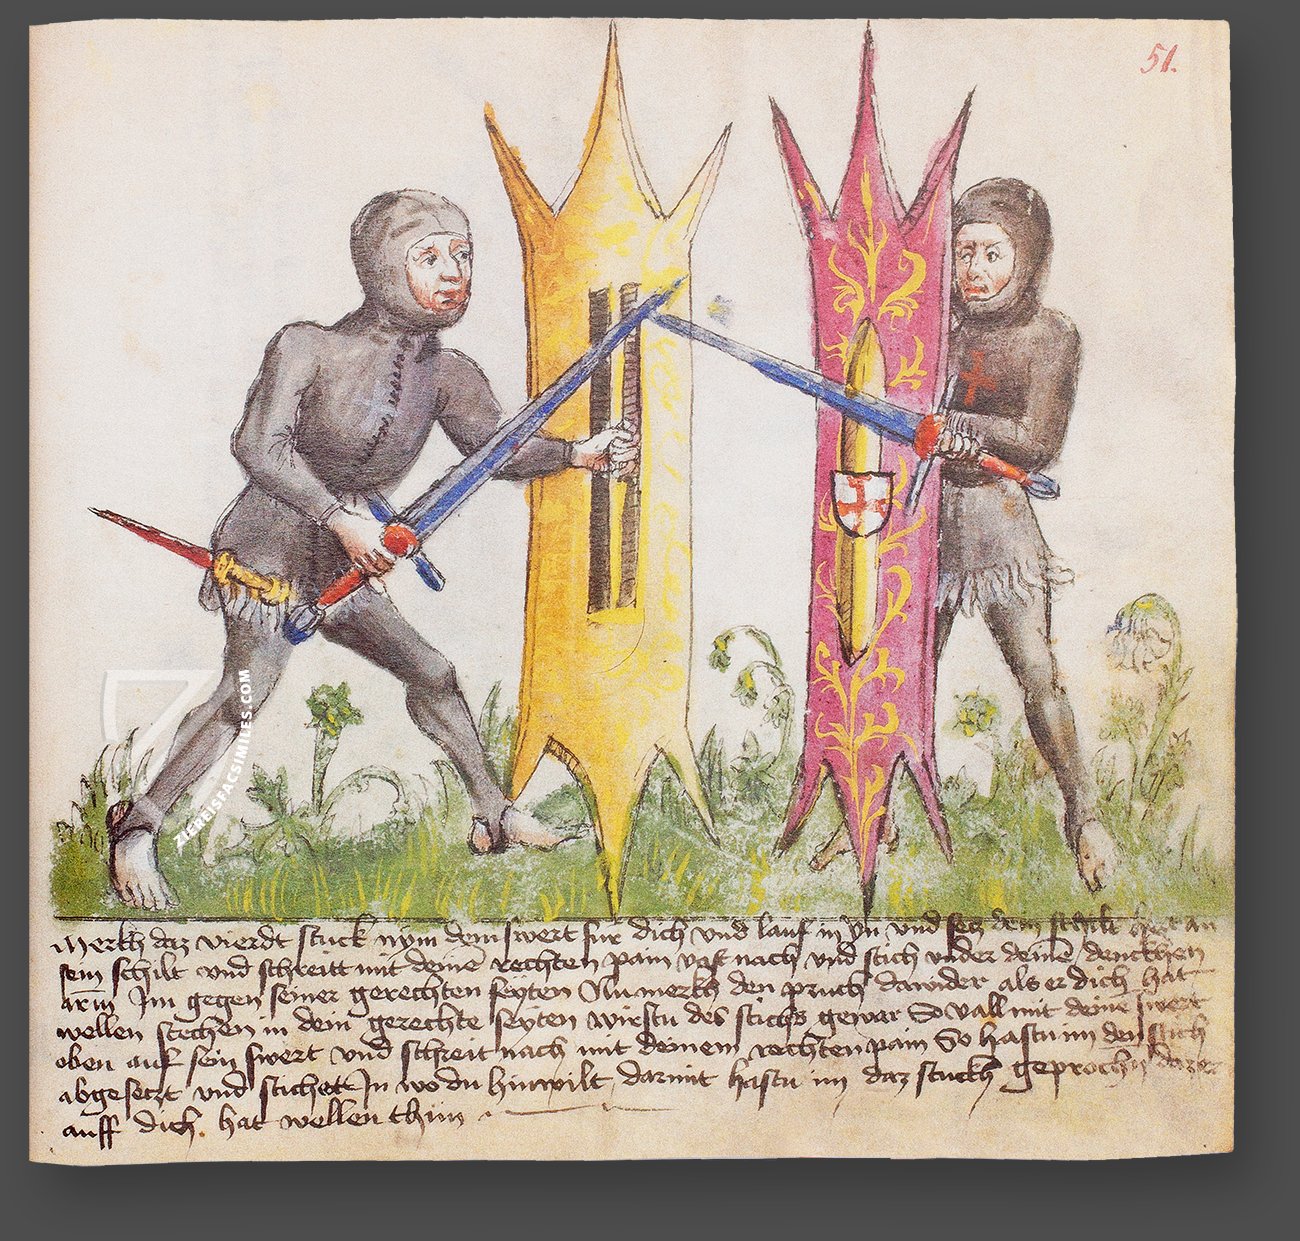 51.
Merkh daz vierdt stuck nym dein swert fur dich vnd lauf in yn vnd secz dein schilt hert an
sein schilt vnd schreitt mit deinē rechten pain vast nach vnd stich vnder deinē denckhen
arm Im gegen seiner gerechten seyten Nu merkh den pruch dawider als er dich hat
wellen stechen in dein gerechte seyten wirstu des stichs gewar So vall mit deinē swert
oben auf sein swert vnd schreit nach mit deinem rechten pain So hastu im den stich
abgeseczt vnd stichest In wo du hin wilt darmit hastu im daz stuckh geprochen daz er
auff dich hat wellen thun
ZIEREISFACSIMILES.COM